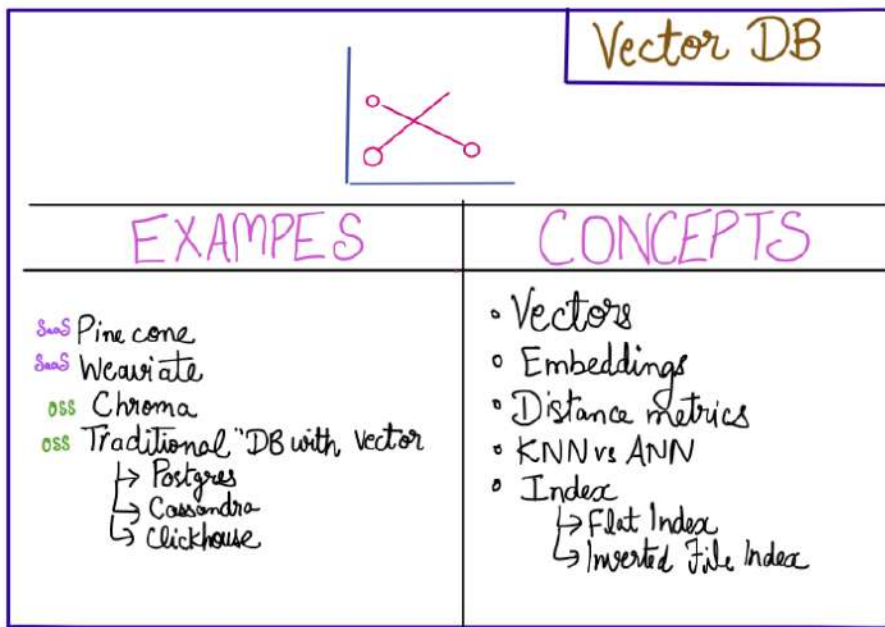 Vector DB
EXAMPES
CONCEPTS
SaaS Pine cone
SaaS Weaviate
OSS Chroma
OSS Traditional "DB with Vector
↳ Postgres
↳ Cassandra
↳ Clickhouse
• Vectors
• Embeddings
• Distance metrics
• KNN vs ANN
• Index
↳ Flat Index
↳ Inverted File Index